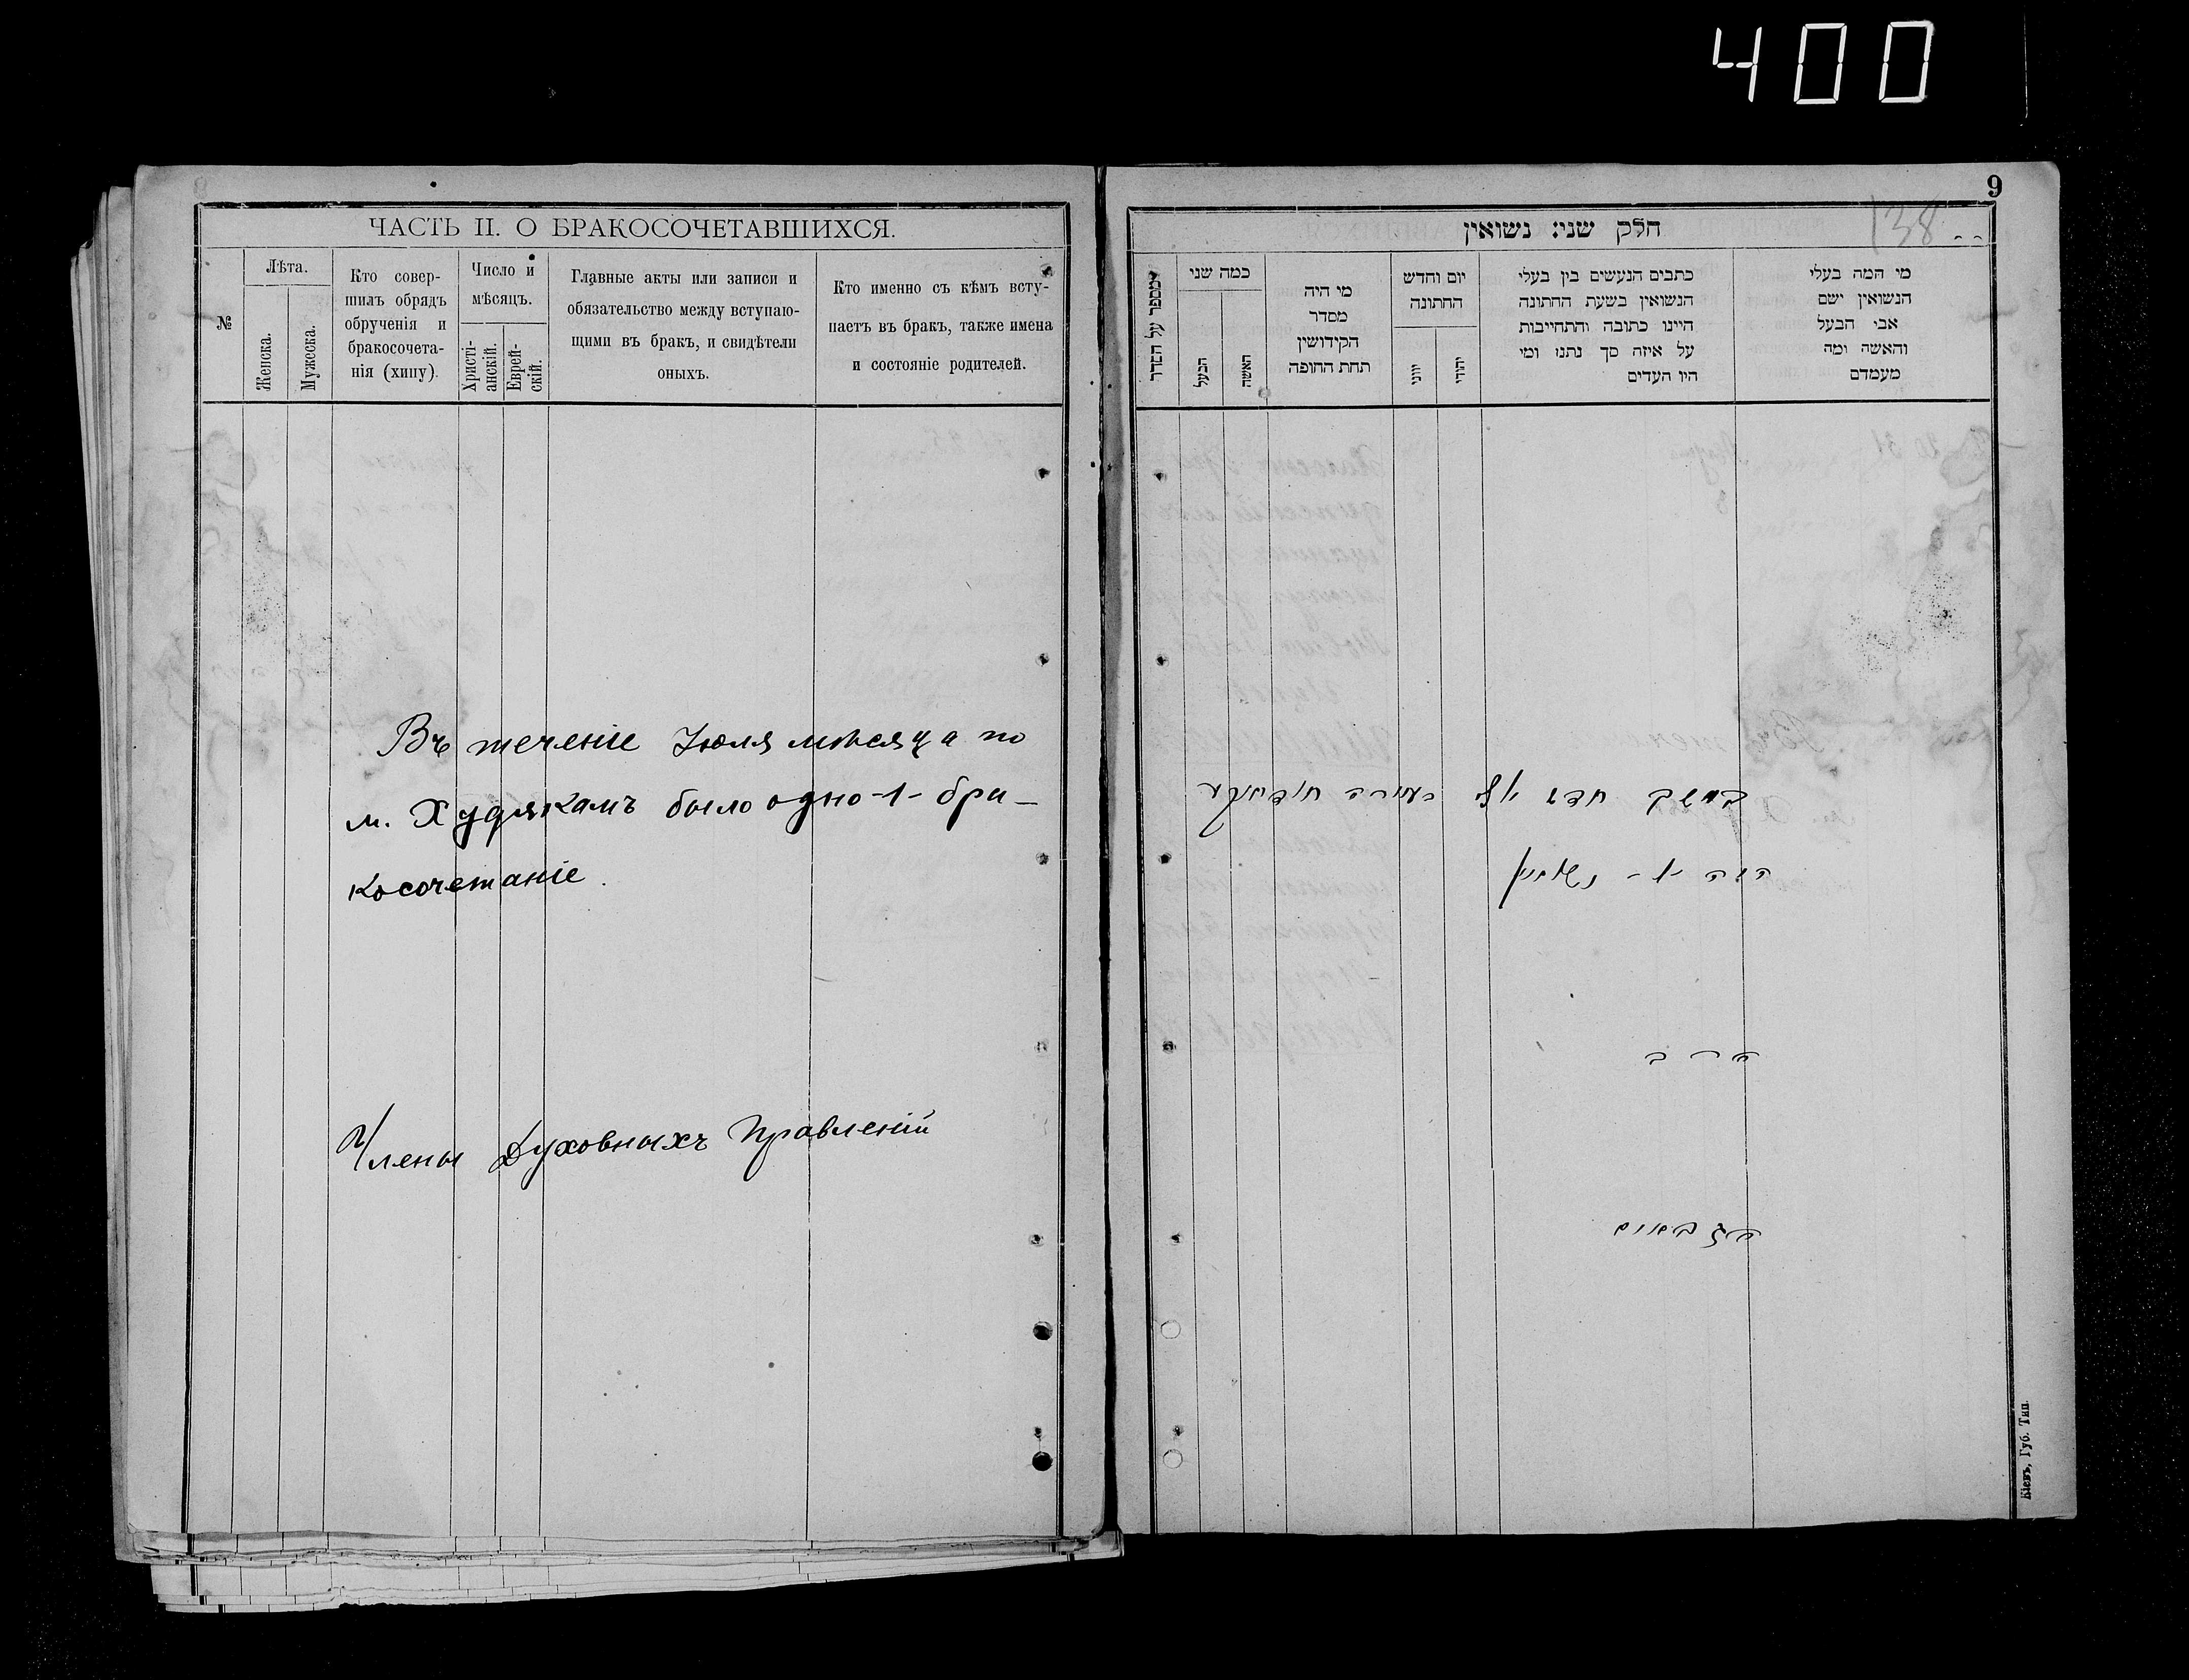 400
ЧАСТЬ II. О БРАКОСОЧЕТАВШИХСЯ.
№
Лѣта.
Женска.
Мужеска.
Кто совер-
шилъ обрядъ
обрученія и
бракосочета-
нія (хипу).
Число и
мѣсяцъ.
Христі-
анскій.
Еврей-
скій.
Главные акты или записи и
обязательство между вступаю-
щими въ бракъ, и свидѣтели
оныхъ.
Кто именно съ кѣмъ всту-
паетъ въ бракъ, также имена
и состояніе родителей.
Въ теченіе Іюля мѣсяца по
м. Худякамъ было одно -1- бра-
косочетаніе.
Члены Духовныхъ Правленій
9
138
חלק שני: נשואין
מספר על הסדר
כמה שני
הבעל
האשה
מי היה
מסדר
הקידושין
תחת החופה
יום וחדש
החתונה
יווני
יהודי
כתבים הנעשים בין בעלי
הנשואין בשעת החתונה
היינו כתובה והתחייבות
על איזה סך נתנו ומי
היו העדים
מי המה בעלי
הנשואין ושם
אבי הבעל
והאשה ומה
מעמדם
במשך חדש
היה -1- נשואין
הרב
הגבאים
Кіевъ, Губ. Тип.